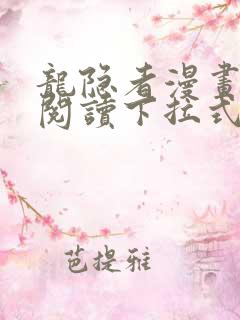 龍隐者漫畫
閱讀下拉式
芭提雅